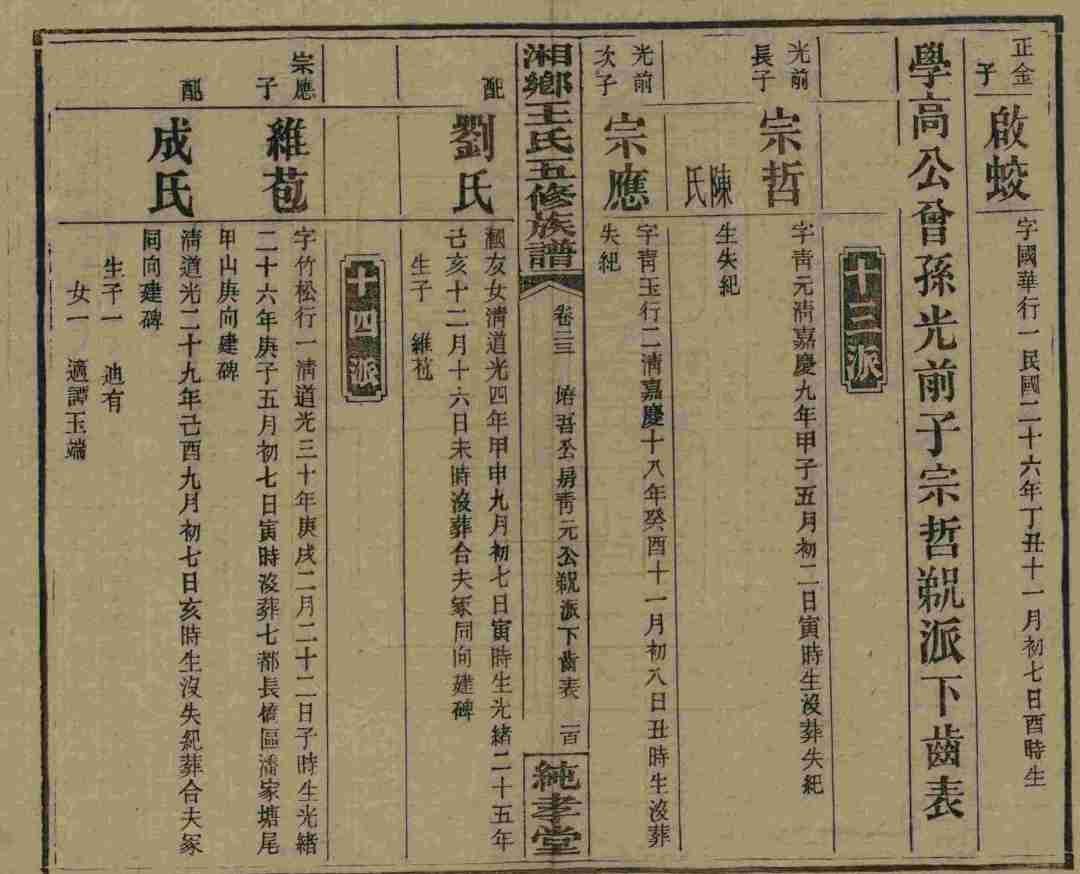 正金
子
啟蛟
字國華行一民國二十六年丁丑十一月初七日酉時生
學高公曾孫光前子宗哲覾派下齒表
十三派
光前
長子
宗哲
字靑元淸嘉慶九年甲子五月初二日寅時生沒葬失紀
陳氏
生失紀
光前
次子
宗應
字靑玉行二淸嘉慶十八年癸酉十一月初八日丑時生沒葬
失紀
湘鄕王氏五修族譜
卷三三
培吾公房靑元公覾派下齒表
一百
純孝堂
配
劉氏
友女淸道光四年甲申九月初七日寅時生光緖二十五年
己亥十二月十六日未時沒葬合夫冢同向建碑
生子一 維苞
十四派
宗應
子
維苞
字竹松行一淸道光三十年庚戌二月二十二日子時生光緖
二十六年庚子五月初七日寅時沒葬七都長橋區潘家塘尾
甲山庚向建碑
配
成氏
淸道光二十九年己酉九月初七日亥時生沒失紀葬合夫冢
同向建碑
生子一 迪有
女一 適譚玉端